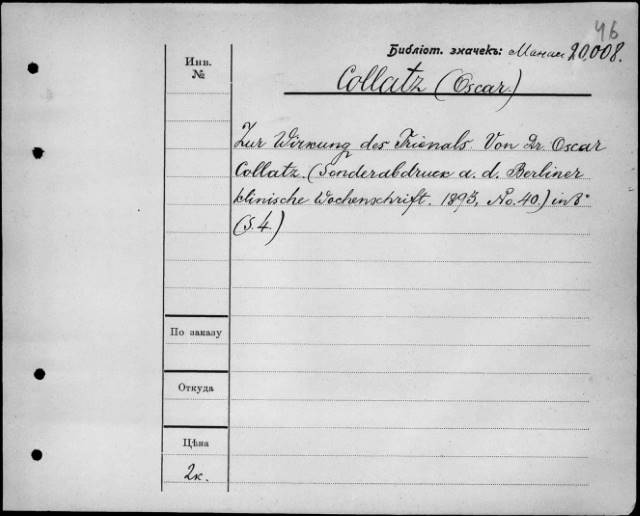 46
Библіот. значекъ: Манас 20,008.
Инв.
№
Collatz (Oscar.)
Zur Wirkung des Trionals. Von Dr. Oscar
Collatz. (Sonderabdruck a. d. Berliner
klinische Wochenschrift. 1893, No. 40.) in 8°
(S. 4.)
По заказу
Откуда
Цѣна
2к.